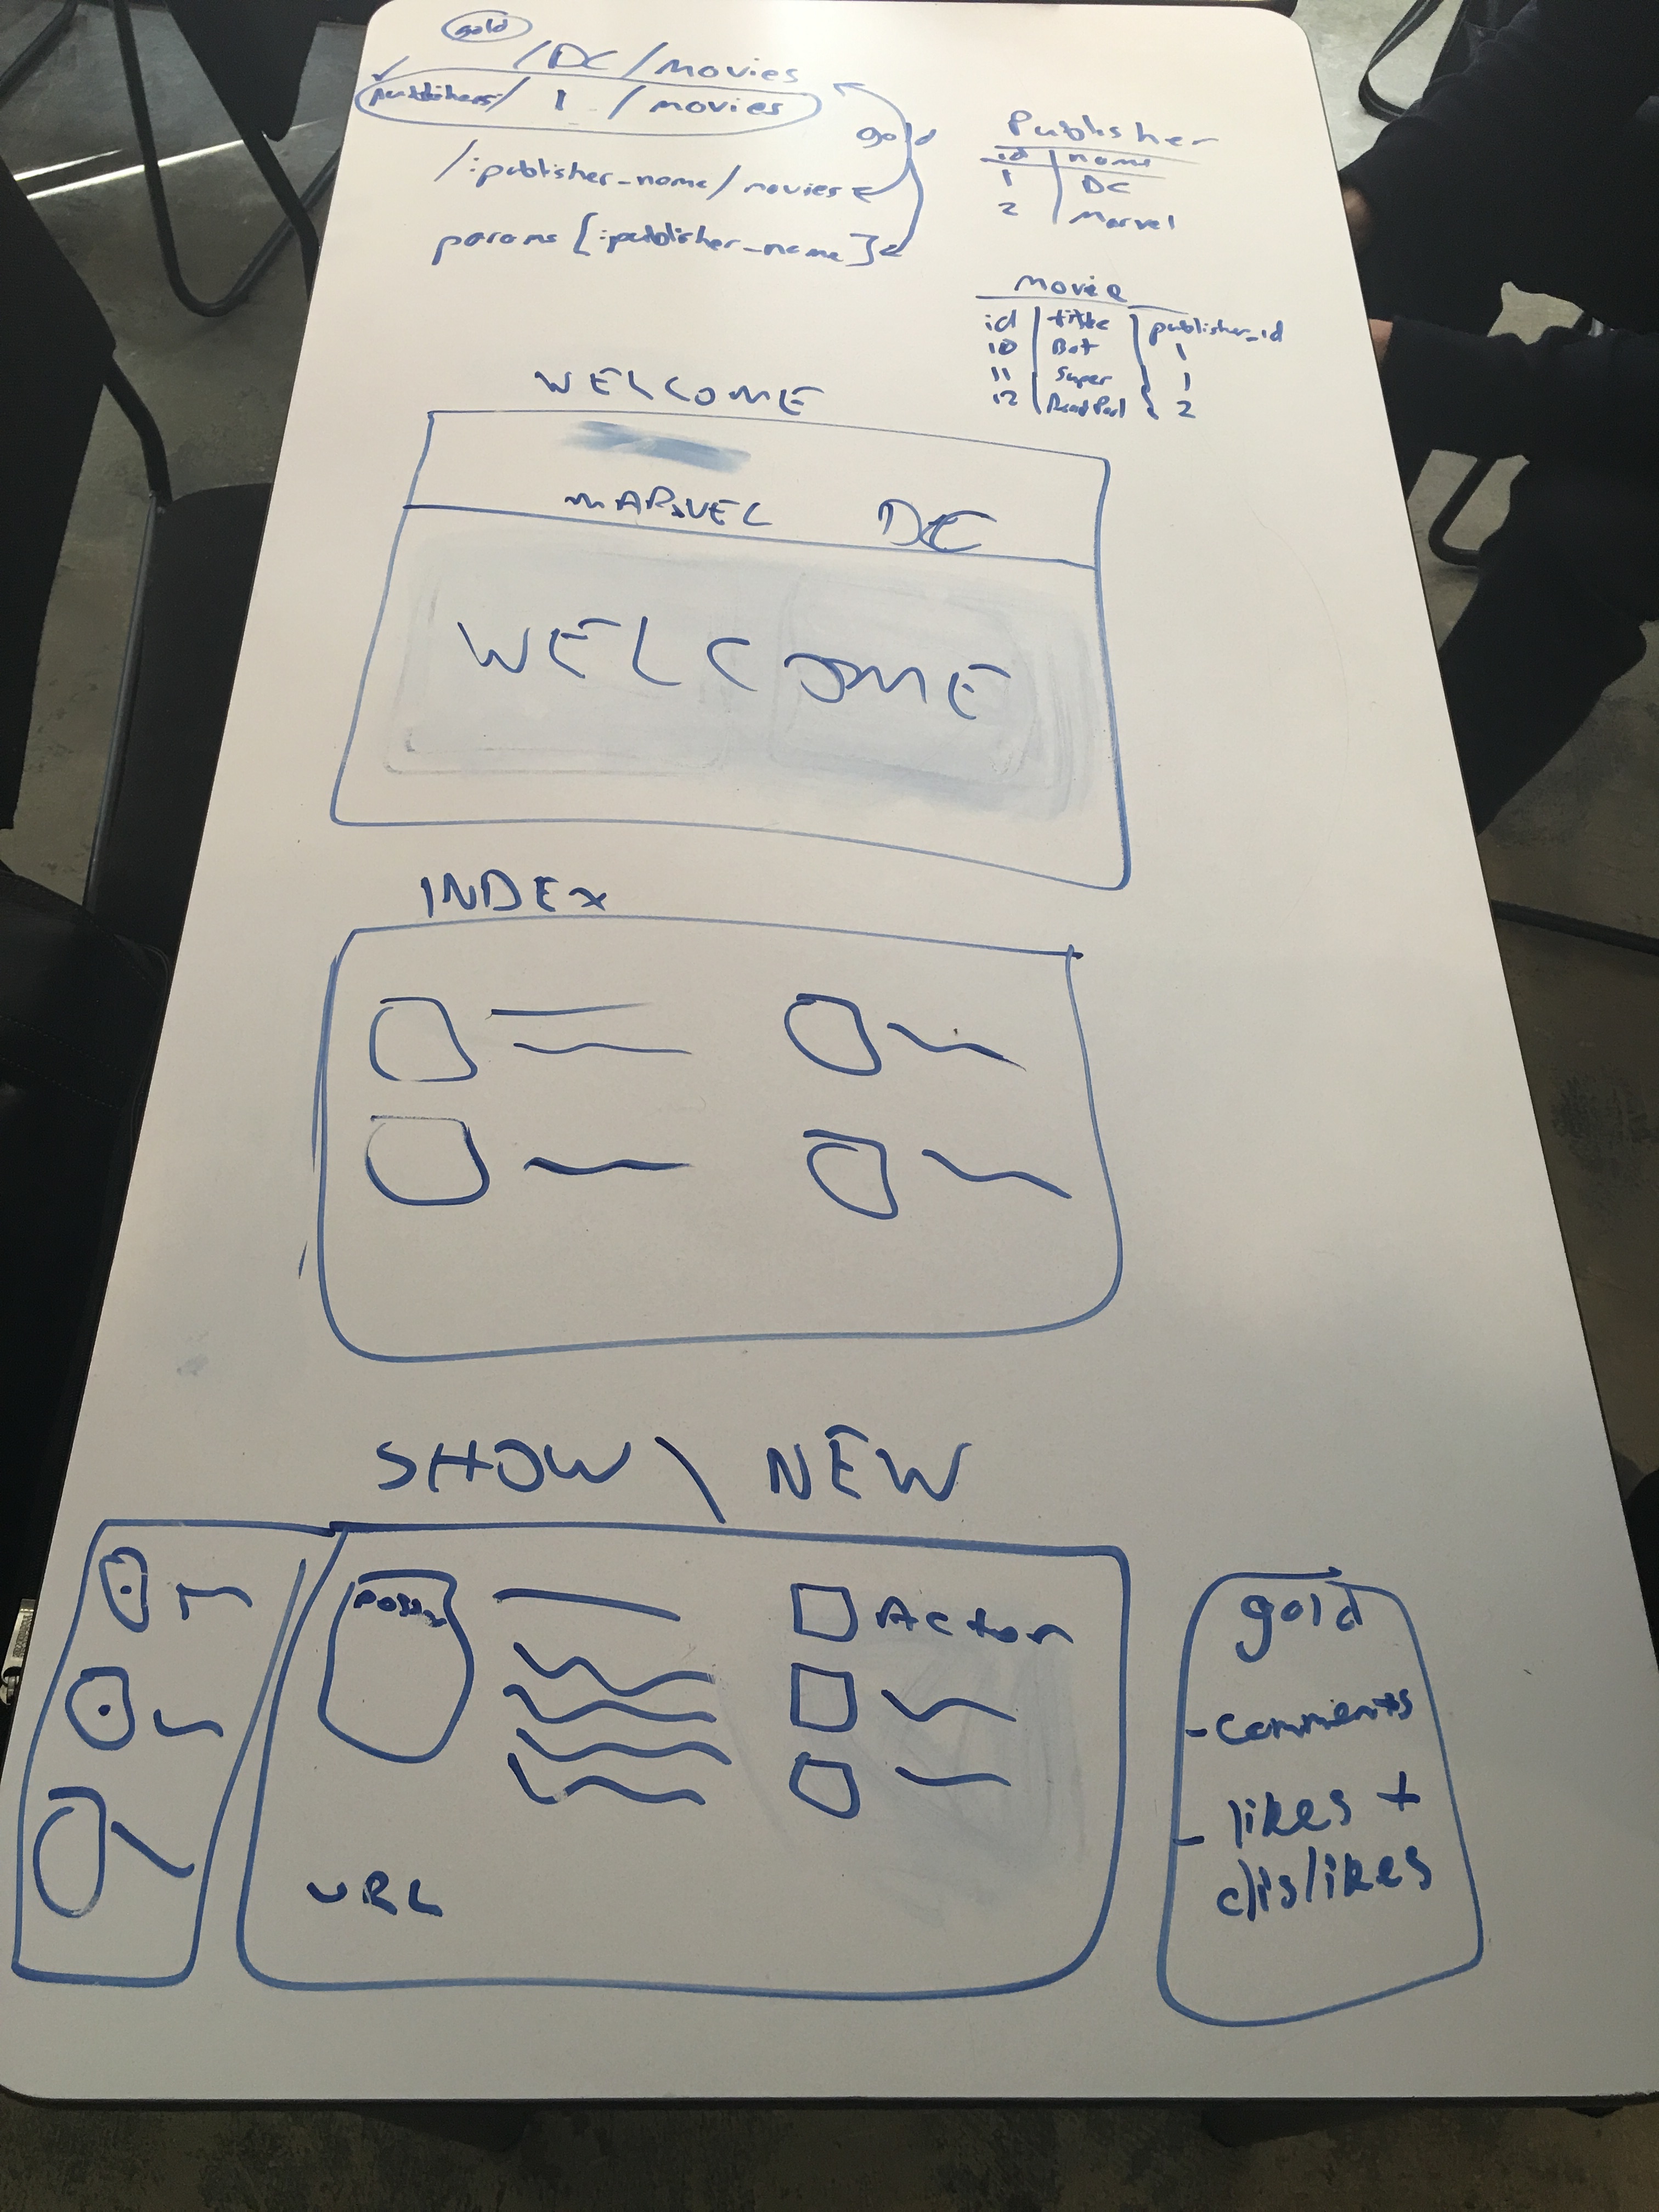 gold
/DC/movies
✓ publishers/ 1 /movies
gold
/:publisher_name/movies
params [:publisher_name]
Publisher
id | name
1 | DC
2 | Marvel
Movie
id | title | publisher_id
10 | Bat | 1
11 | Super | 1
12 | | 2
WELCOME
MARVEL DC
WELCOME
INDEX
SHOW \ NEW
Action
URL
gold
- comments
- likes +
dislikes